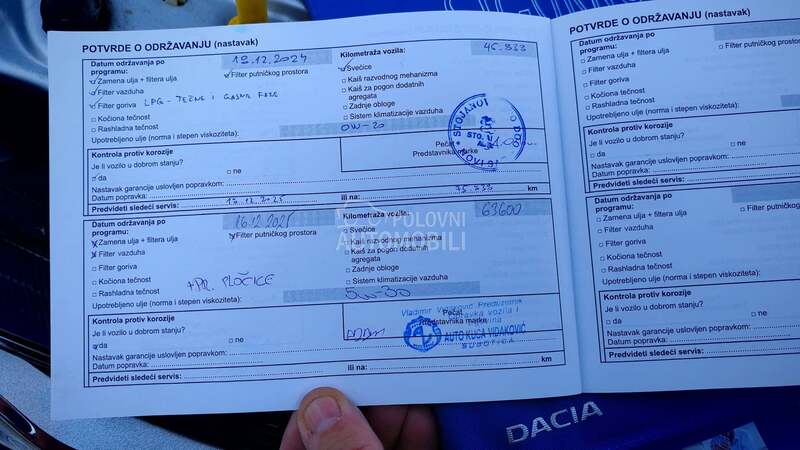 POTVRDE O ODRŽAVANJU (nastavak)
Datum održavanja po programu: 13.12.2024 Kilometraža vozila: 45.333
Zamena ulja + filtera ulja Filter putničkog prostora Svećice
Filter vazduha Kaiš razvodnog mehanizma
Filter goriva LPG - TEČNE I GASNE FAZE Kaiš za pogon dodatnih agregata
Kočiona tečnost Zadnje obloge
Rashladna tečnost Sistem klimatizacije vazduha
Upotrebljeno ulje (norma i stepen viskoziteta): 0W-20
Kontrola protiv korozije Pečat
Je li vozilo u dobrom stanju? Predstavnika marke
da ne
Nastavak garancije uslovljen popravkom:
Datum popravke:
Predvideti sledeći servis: 13.12.2025 ili na: 75.333 km
Datum održavanja po programu: 16.12.2025 Kilometraža vozila: 63600
Zamena ulja + filtera ulja Filter putničkog prostora Svećice
Filter vazduha Kaiš razvodnog mehanizma
Filter goriva Kaiš za pogon dodatnih agregata
Kočiona tečnost +PR. PLOČICE Zadnje obloge
Rashladna tečnost Sistem klimatizacije vazduha
Upotrebljeno ulje (norma i stepen viskoziteta): 5W-30
Kontrola protiv korozije Pečat
Je li vozilo u dobrom stanju? Predstavnika marke
da ne
AUTO KUĆA VIDAKOVIĆ
SUBOTICA
Nastavak garancije uslovljen popravkom:
Datum popravke:
Predvideti sledeći servis: ili na: km
POLOVNI
AUTOMOBILI
POTVRDE O ODRŽAVANJU (nastavak)
Datum održavanja po programu:
Zamena ulja + filtera ulja
Filter vazduha
Filter goriva
Kočiona tečnost
Rashladna tečnost
Upotrebljeno ulje (norma i stepen viskoziteta):
Kontrola protiv korozije
Je li vozilo u dobrom stanju?
da ne
Nastavak garancije uslovljen popravkom:
Datum popravke:
Predvideti sledeći servis:
Datum održavanja po programu:
Zamena ulja + filtera ulja
Filter vazduha
Filter goriva
Kočiona tečnost
Rashladna tečnost
Upotrebljeno ulje (norma i stepen viskoziteta):
Kontrola protiv korozije
Je li vozilo u dobrom stanju?
da ne
Nastavak garancije uslovljen popravkom:
Datum popravke:
Predvideti sledeći servis:
DACIA